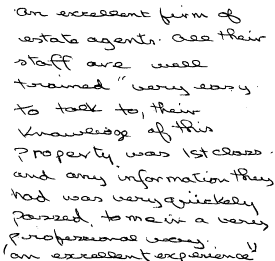 an excellent firm of
estate agents. all their
staff are well
trained "very easy
to talk to, their
knowledge of this
property, was 1st class.
and any information they
had was very quickely
passed, to me in a very
professional way.
"an excellent experience"